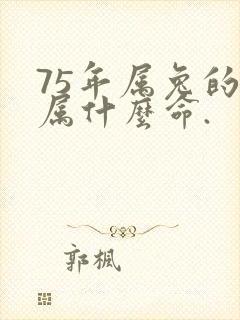 75年属兔的
属什麼命.
郭楓